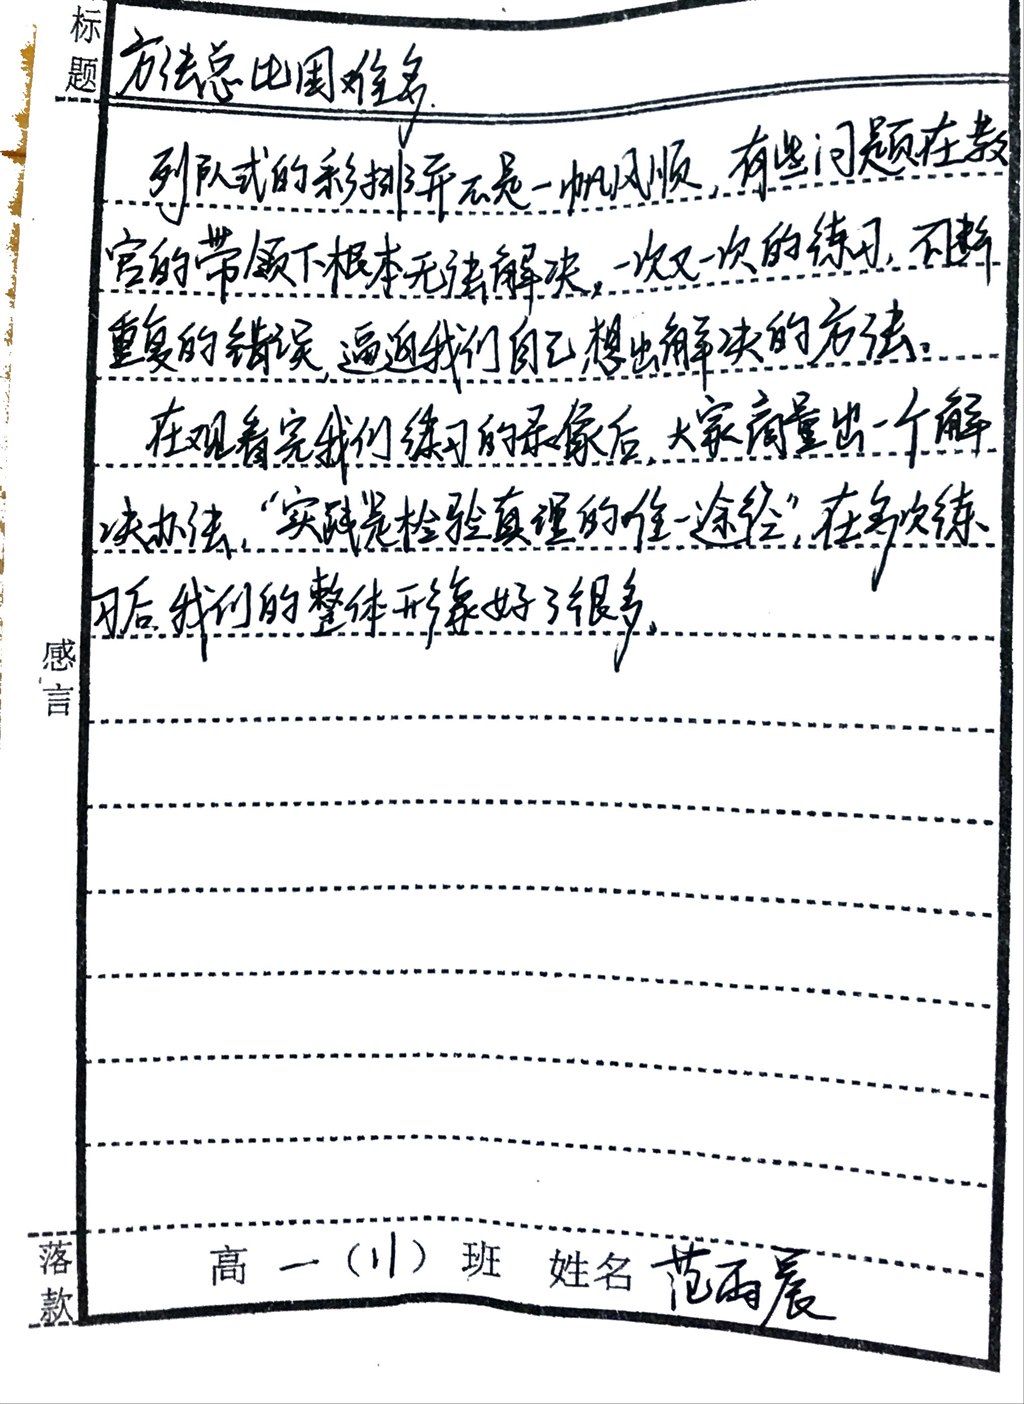 标题
方法总比困难多.
列队式的彩排并不是一帆风顺，有些问题在教
官的带领下根本无法解决。一次又一次的练习，不断
重复的错误，逼迫我们自己想出解决的方法。
在观看完我们练习的录像后，大家商量出一个解
决办法，“实践是检验真理的唯一途径”，在多次练
习后，我们的整体形象好了很多。
感言
落款
高一（11）班 姓名 范雨晨